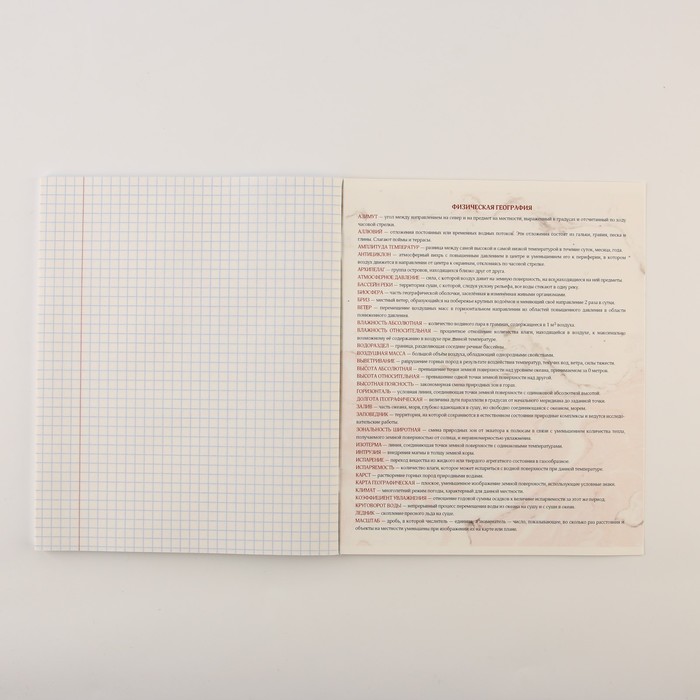 ФИЗИЧЕСКАЯ ГЕОГРАФИЯ
АЗИМУТ — угол между направлением на север и на предмет на местности, выраженный в градусах и отсчитанный по ходу
часовой стрелки.
АЛЛЮВИЙ — отложения постоянных или временных водных потоков. Эти отложения состоят из гальки, гравия, песка и
глины. Слагают поймы и террасы.
АМПЛИТУДА ТЕМПЕРАТУР — разница между самой высокой и самой низкой температурой в течение суток, месяца, года.
АНТИЦИКЛОН — атмосферный вихрь с повышенным давлением в центре и уменьшением его к периферии, в котором
воздух движется в направлении от центра к окраинам, отклоняясь по часовой стрелке.
АРХИПЕЛАГ — группа островов, находящихся близко друг от друга.
АТМОСФЕРНОЕ ДАВЛЕНИЕ — сила, с которой воздух давит на земную поверхность, на все находящиеся на ней предметы.
БАССЕЙН РЕКИ — территория суши, с которой, следуя уклону рельефа, все воды стекают в одну реку.
БИОСФЕРА — часть географической оболочки, заселённая и изменённая живыми организмами.
БРИЗ — местный ветер, образующийся на побережье крупных водоёмов и меняющий своё направление 2 раза в сутки.
ВЕТЕР — перемещение воздушных масс в горизонтальном направлении из областей повышенного давления в области
пониженного давления.
ВЛАЖНОСТЬ АБСОЛЮТНАЯ — количество водяного пара в граммах, содержащихся в 1 м³ воздуха.
ВЛАЖНОСТЬ ОТНОСИТЕЛЬНАЯ — процентное отношение количества влаги, находящейся в воздухе, к максимально
возможному её содержанию в воздухе при данной температуре.
ВОДОРАЗДЕЛ — граница, разделяющая соседние речные бассейны.
ВОЗДУШНАЯ МАССА — большой объём воздуха, обладающий однородными свойствами.
ВЫВЕТРИВАНИЕ — разрушение горных пород в результате воздействия температур, текучих вод, ветра, силы тяжести.
ВЫСОТА АБСОЛЮТНАЯ — превышение точки земной поверхности над уровнем океана, принимаемом за 0 метров.
ВЫСОТА ОТНОСИТЕЛЬНАЯ — превышение одной точки земной поверхности над другой.
ВЫСОТНАЯ ПОЯСНОСТЬ — закономерная смена природных зон в горах.
ГОРИЗОНТАЛЬ — условная линия, соединяющая точки земной поверхности с одинаковой абсолютной высотой.
ДОЛГОТА ГЕОГРАФИЧЕСКАЯ — величина дуги параллели в градусах от начального меридиана до заданной точки.
ЗАЛИВ — часть океана, моря, глубоко вдающаяся в сушу, но свободно соединяющаяся с океаном, морем.
ЗАПОВЕДНИК — территория, на которой сохраняются в естественном состоянии природные комплексы и ведутся исследо-
вательские работы.
ЗОНАЛЬНОСТЬ ШИРОТНАЯ — смена природных зон от экватора к полюсам в связи с уменьшением количества тепла,
получаемого земной поверхностью от солнца, и неравномерностью увлажнения.
ИЗОТЕРМА — линия, соединяющая точки земной поверхности с одинаковыми температурами.
ИНТРУЗИЯ — внедрение магмы в толщу земной коры.
ИСПАРЕНИЕ — переход вещества из жидкого или твердого агрегатного состояния в газообразное.
ИСПАРЯЕМОСТЬ — количество влаги, которое может испариться с водной поверхности при данной температуре.
КАРСТ — растворение горных пород природными водами.
КАРТА ГЕОГРАФИЧЕСКАЯ — плоское, уменьшенное изображение земной поверхности, использующее условные знаки.
КЛИМАТ — многолетний режим погоды, характерный для данной местности.
КОЭФФИЦИЕНТ УВЛАЖНЕНИЯ — отношение годовой суммы осадков к величине испаряемости за этот же период.
КРУГОВОРОТ ВОДЫ — непрерывный процесс перемещения воды из океана на сушу и с суши в океан.
ЛЕДНИК — скопление пресного льда на суше.
МАСШТАБ — дробь, в которой числитель — единица, а знаменатель — число, показывающее, во сколько раз расстояния и
объекты на местности уменьшены при изображении их на карте или плане.